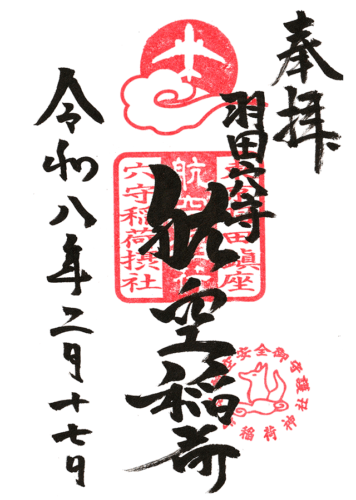 奉拝
羽田穴守
航空稲荷
令和八年二月十七日
田鎮座
航空稲荷
穴守稲荷摂社
安全御守護社
稲荷神